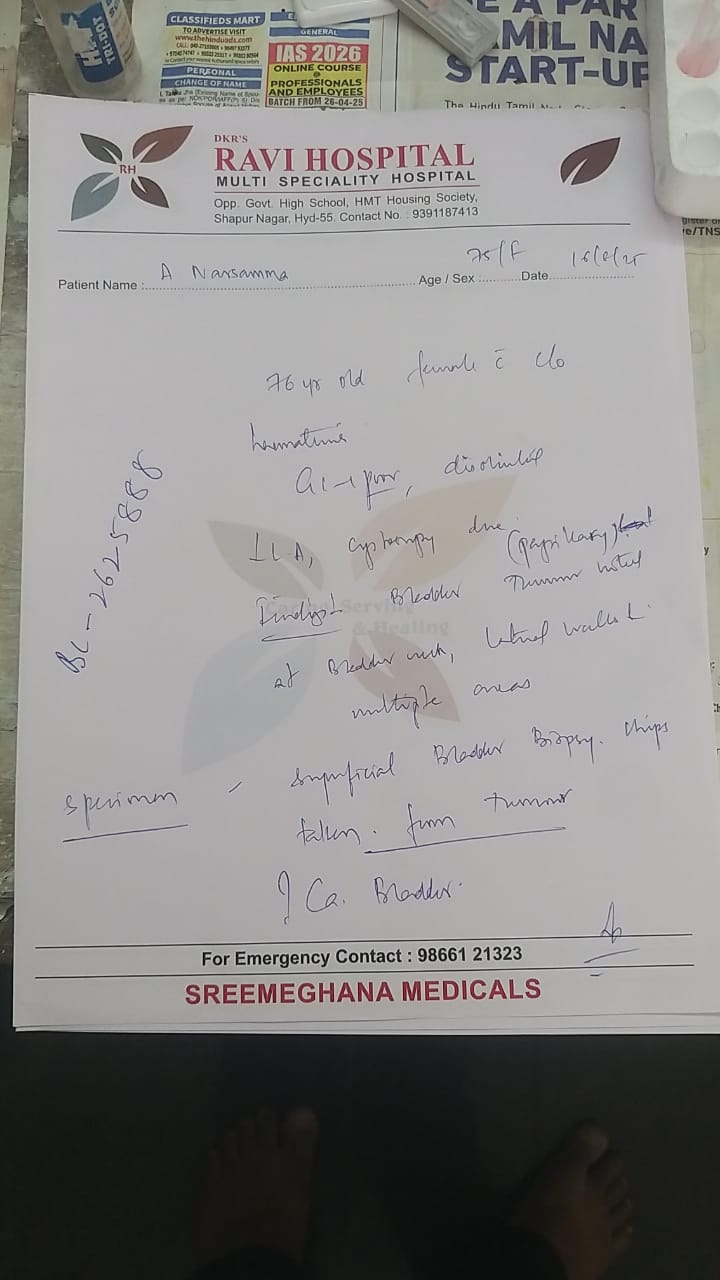 CLASSIFIEDS MART
TO ADVERTISE VISIT
www.thehinduads.com
PERSONAL
CHANGE OF NAME
GENERAL
IAS 2026
ONLINE COURSE
@
PROFESSIONALS
AND EMPLOYEES
BATCH FROM 26-04-25
E A PAR
AMIL NA
START-UP
The Hindu Tamil
RH
DKR'S
RAVI HOSPITAL
MULTI SPECIALITY HOSPITAL
Opp. Govt. High School, HMT Housing Society,
Shapur Nagar, Hyd-55. Contact No. : 9391187413
Patient Name : A Narsamma Age / Sex : 75/F Date
76 yr old female c̄ c/o
GC → poor,
due (papillary)
Bladder Tumour noted
at Bladder neck, lateral walls
multiple areas
Serving
& Healing
BL-2625888
Specimen - Superficial Bladder Biopsy. chips
taken. from tumour
? Ca. Bladder.
For Emergency Contact : 98661 21323
SREEMEGHANA MEDICALS